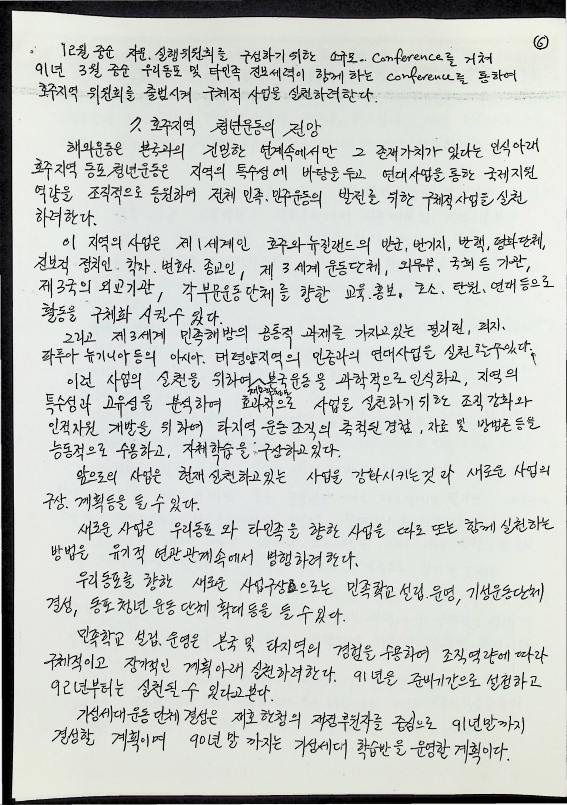 ⑥
12월 중순 자문. 실행위원회를 구성하기 위한 소규모.. Conference를 거쳐
91년 3월 중순 우리동포 및 타민족 진보세력이 함께 하는 conference를 통하여
호주지역 위원회를 출범시켜 구체적 사업을 실천하려한다.
7. 호주지역 청년운동의 전망
해외운동은 본국과의 긴밀한 연계속에서만 그 존재가치가 있다는 인식아래
호주지역 동포.청년운동은 지역의 특수성에 바탕을 두고 연대사업을 통한 국제지원
역량을 조직적으로 동원하여 전체 민족.민주운동의 발전을 위한 구체적사업을 실천
하려한다.
이 지역의 사업은 제1세계인 호주와뉴질랜드의 반전, 반기지, 반핵, 평화단체,
진보적 정치인. 학자. 변호사. 종교인, 제3세계 운동단체, 외무부. 국회등 기관,
제3국의 외교기관, 각부문운동단체를 향한 교육.홍보. 호소. 탄원. 연대등으로
활동을 구체화 시킬수 있다.
그리고 제3세계 민족해방의 공통적 과제를 가지고있는 필리핀, 피지.
파푸아 뉴기니아등의 아시아. 태평양지역의 민중과의 연대사업을 실천할수있다.
이런 사업의 실천을 위하여 본국운동을 과학적으로 인식하고, 지역의
특수성과 고유성을 분석하여 효과적으로 사업을 실천하기 위한 조직강화와
인적자원 개발을 위하여 타지역 운동조직의 축적된경험, 자료 및 방법론등을
능동적으로 수용하고, 자체학습을 구상하고있다.
앞으로의 사업은 현재 실천하고있는 사업을 강화시키는것과 새로운 사업의
구상. 계획등을 들 수 있다.
새로운 사업은 우리동포와 타민족을 향한 사업을 따로 또는 함께 실천하는
방법을 유기적 연관관계속에서 병행하려한다.
우리동포를 향한 새로운 사업구상으로는 민족학교설립.운영, 기성운동단체
결성, 동포청년 운동단체 확대등을 들 수있다.
민족학교 설립.운영은 본국 및 타지역의 경험을 수용하여 조직역량에 따라
구체적이고 장기적인 계획아래 실천하려한다. 91년은 준비기간으로 설정하고
92년부터는 실천될수 있다고본다.
기성세대운동단체 결성은 재호한청의 재정후원자를 중심으로 91년말까지
결성할 계획이며 90년 말까지는 기성세대 학습반을 운영할 계획이다.